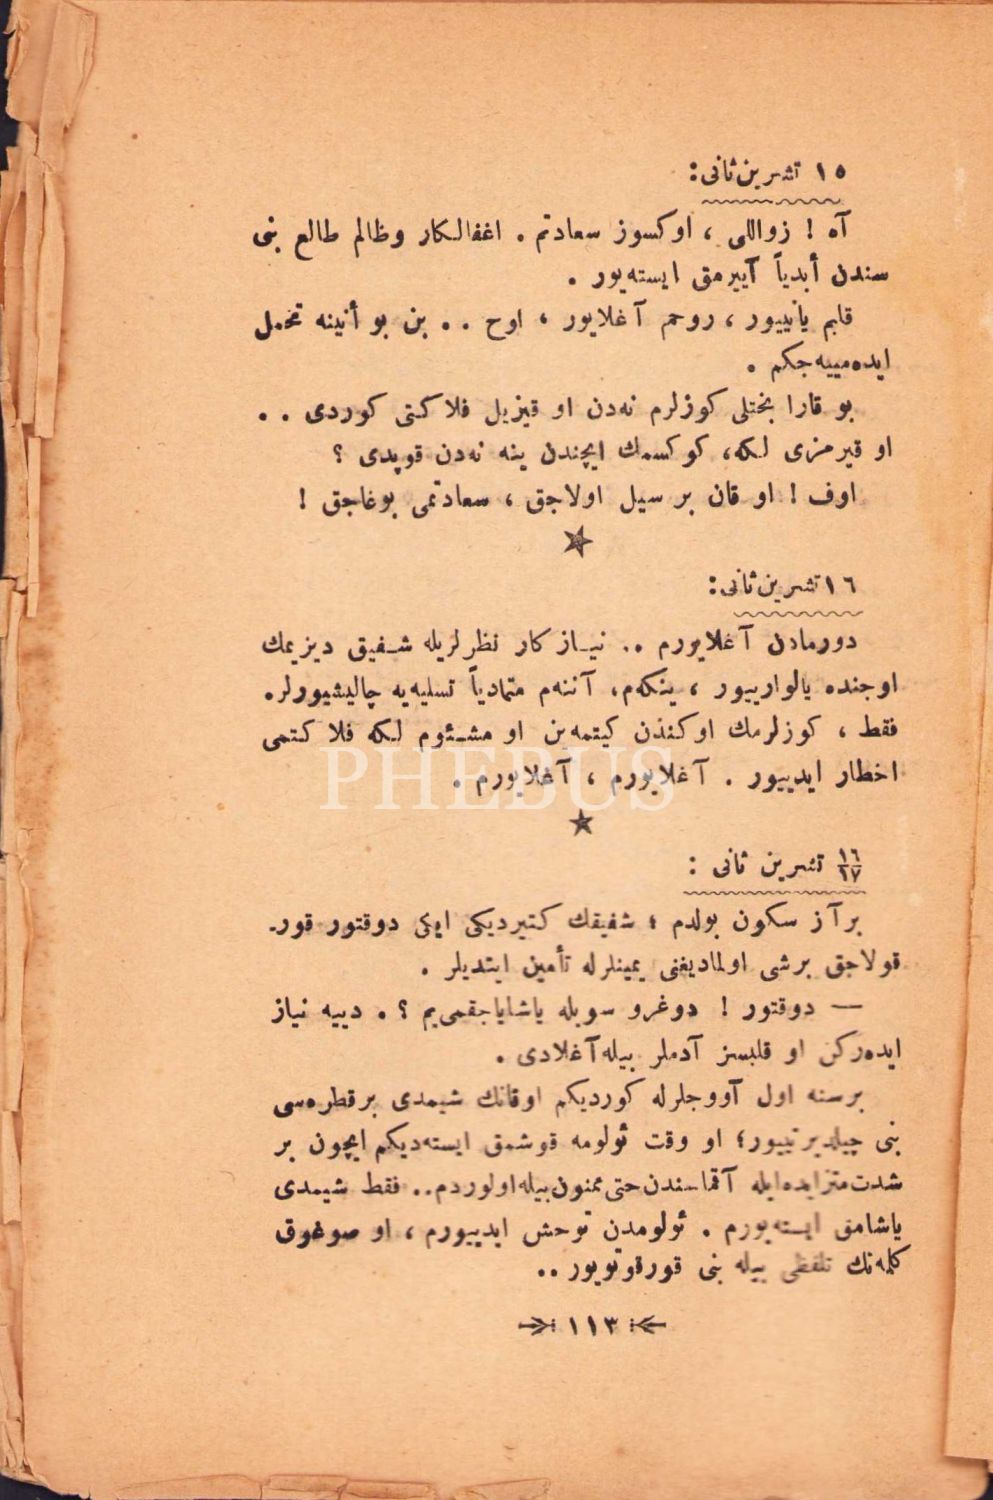 ١٥ تشرین ثانی:
آه ! زواللی ، اوکسوز سعادتم . اغفالکار وظالم طالع بنی
سندن أبدیاً آییرمق ایسته‌یور .
قلبم یانییور ، روحم آغلایور ، اوح . . بن بو أنینه تحمل
ایده‌مییه‌جکم .
بو قارا بختلی کوزلرم نه‌دن او قیزیل فلاکتی کوردی . .
او قیرمزی لکه، کوکسمك ایچندن ینه نه‌دن قوپدی ؟
اوف ! او قان بر سیل اولاجق ، سعادتمی بوغاجق !
١٦ تشرین ثانی:
دورمادن آغلایورم .. نیـازکار نظرلریله شـفیق دیزیمك
اوجنده یالوارییور ، ینکه‌م، آننه‌م متمادیاً تسلیه‌یه چالیشیورلر.
فقط ، کوزلرمك اوکندن کیتمه‌ین او مشـئوم لکه فلاکتمی
اخطار ایدییور . آغلایورم ، آغلایورم .
PHEBUS
١٦/١٧ تشرین ثانی :
برآز سکون بولدم ؛ شفیقك کتیردیکی ایکی دوقتور قور-
قولاجق برشی اولمادیغنی یمینلرله تأمین ایتدیلر .
— دوقتور ! دوغرو سویله یاشایاجقمی‌یم ؟ . دییه نیاز
ایده‌رکن او قلبسز آدملر بیله آغلادی .
برسنه اول آووجلرله کوردیکم اوقانك شیمدی برقطره‌سی
بنی چیلدیرتییور؛ او وقت ئولومه قوشمق ایسته‌دیکم ایچون بر
شدت‌متزایده‌ایله آقماسندن‌حتی‌ممنون‌بیله‌اولوردم.. فقط شیمدی
یاشامق ایسـته‌یورم . ئولومدن توحش ایدییورم ، او صوغوق
کلمه‌نك تلفظی بیله بنی قورقوتویور ..
١١٣